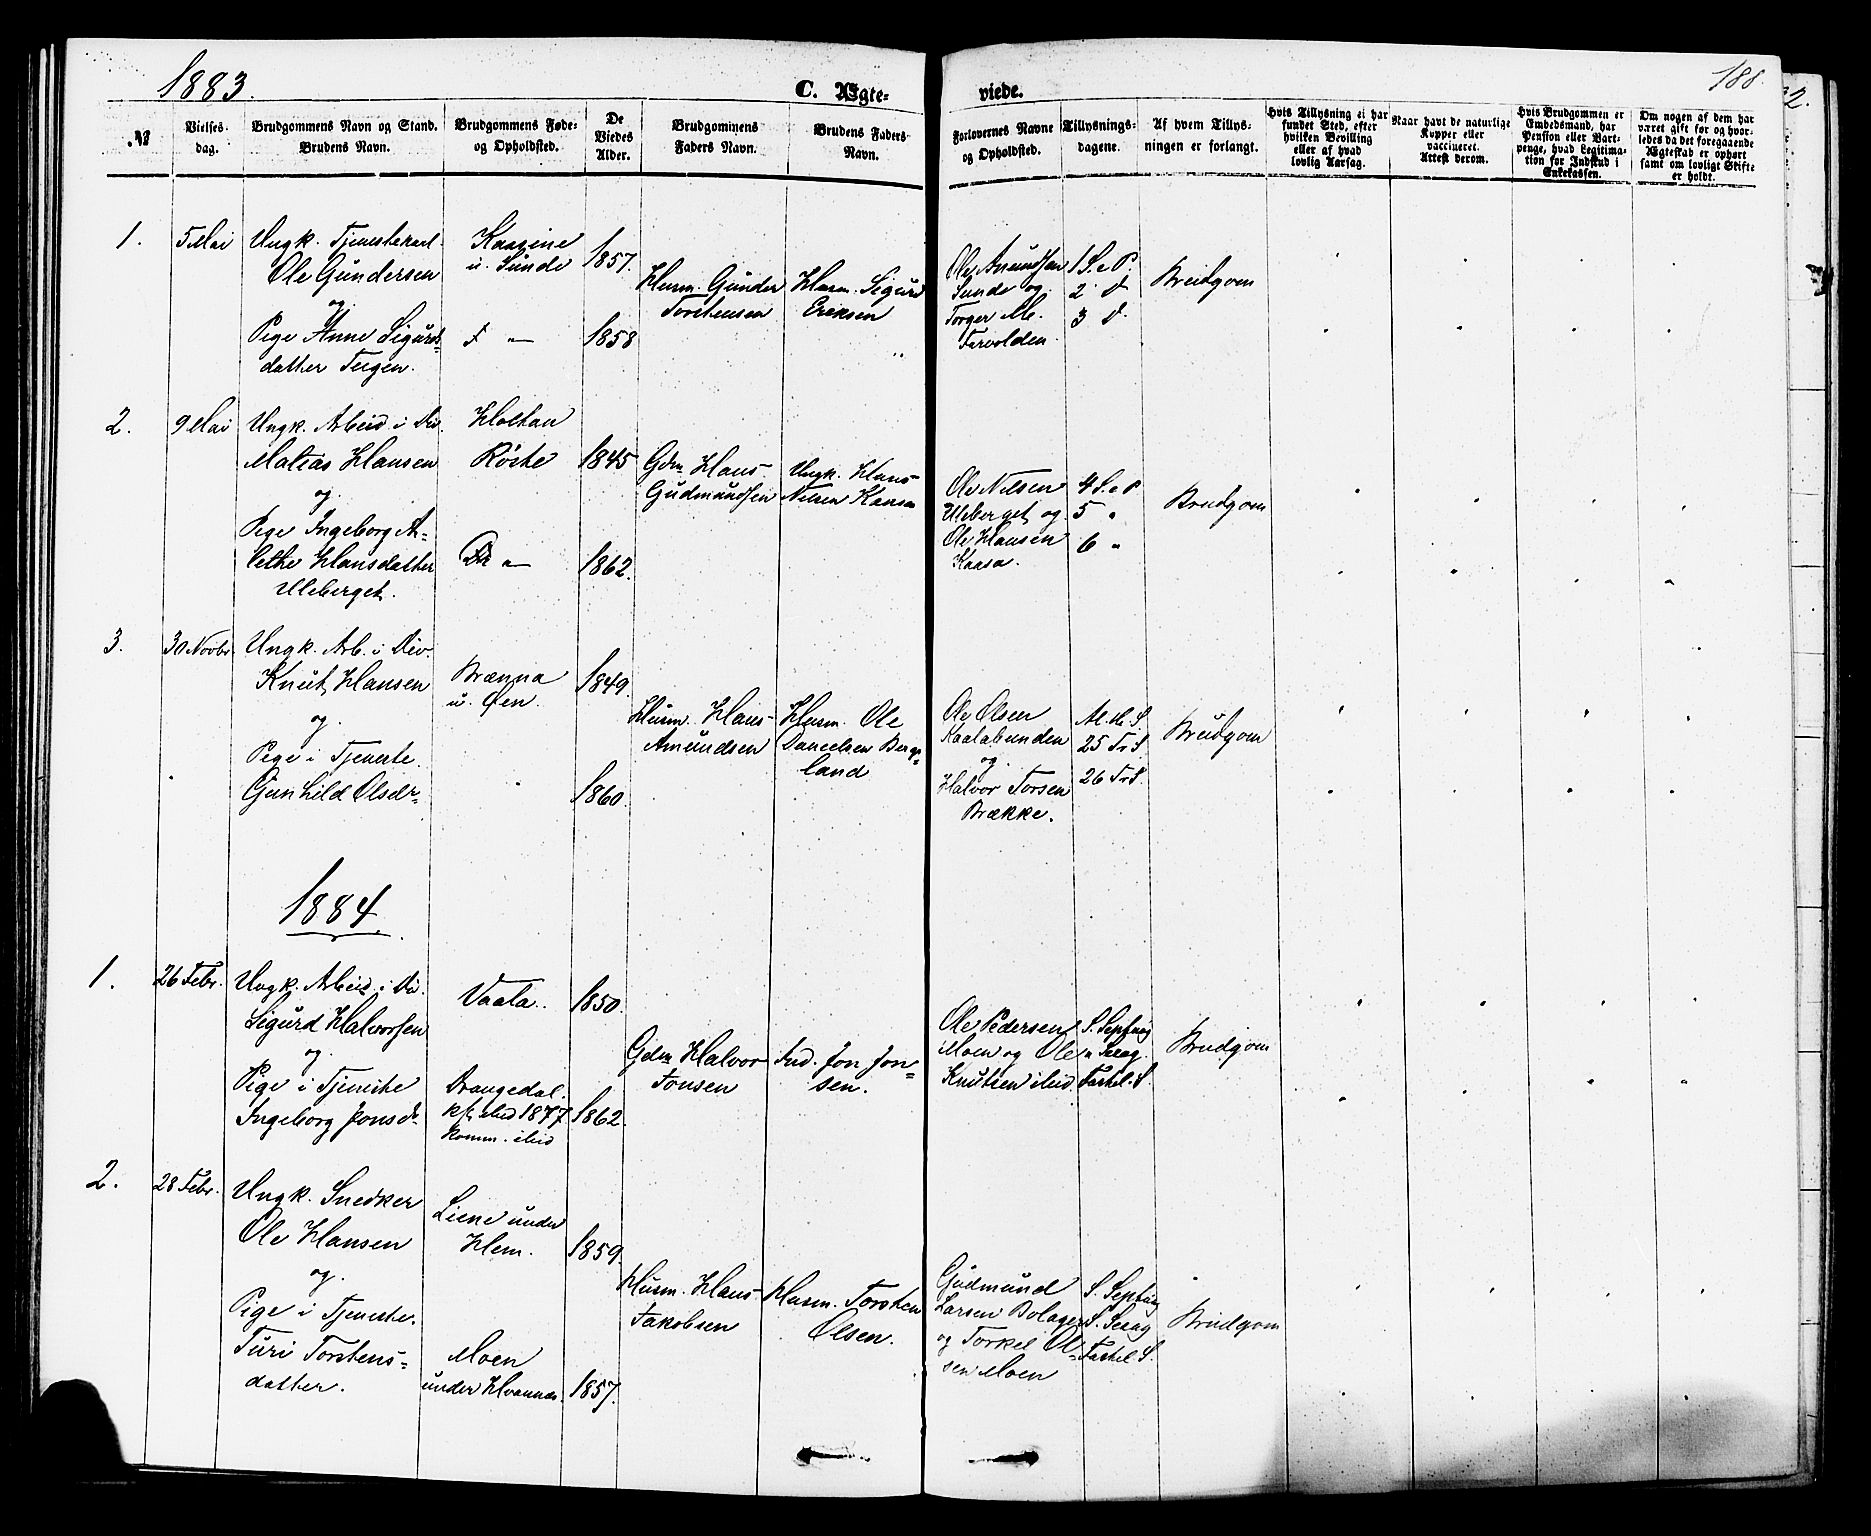 1883.
C. Ægte-
viede.
188.
2.
№
Vielses-
dag.
Brudgommens Navn og Stand.
Brudens Navn.
Brudgommens Føde-
og Opholdsted.
De
Viedes
Alder.
Brudgommens
Faders Navn.
Brudens Faders
Navn.
Forlovernes Navne
og Opholdsted.
Tillysnings-
dagene.
Af hvem Tillys-
ningen er forlangt.
Hvis Tillysning ei har
fundet Sted, efter
hvilken Bevilling
eller af hvad
lovlig Aarsag.
Naar havt de naturlige
Kopper eller
vaccineret.
Attest derom.
Hvis Brudgommen er
Embedsmand, har
Pension eller Vart-
penge, hvad Legitima-
tion for Indskud i
Enkekassen.
Om nogen af dem har
været gift før og hvor-
ledes da det foregaaende
Ægteskab er ophørt
samt om lovligt Skifte
er holdt.
1.
5 Mai
Ungk. Tjenestekarl
Ole Gundersen
og
Pige Anne Sigurds-
datter Teigen.
Kaasine
u. Sunde
d "
1857.
1858
Husm. Gunder
Torstensen
Husm. Sigurd
Eriksen
Ole Amundsen
Sunde og
Torger M.
Tarvolden.
1 S. e P.
2 d
3 d.
Brudgom
2.
9 Mai
Ungk. Arbeid. i Div.
Matias Hansen
og
Pige Ingeborg A-
lethe Hansdatter
Uleberget.
Holtan
Røste
Do "
1845
1862.
Gdm Hans
Gudmundsen
Ungk. Hans
Nilsen Kaasa
Ole Nilsen
Uleberget og
Ole Hansen
Kaasa.
4 S. e P
5 "
6 "
Brudgom
3.
30 Novbr
Ungk. Arb. i Div.
Knut Hansen
og
Pige i Tjeneste
Gunhild Olsdr
Brænna
u. Øen.
1849.
1860.
Husm. Hans
Amundsen
Husm. Ole
Danielsen Berge-
land
Ole Olsen
Kaalabunden
og
Halvor Torsen
Brække.
Al. H. S.
25 Tr S
26 Tr S.
Brudgom
1884.
1.
26 Febr.
Ungk. Arbeid. i Div.
Sigurd Halvorsen
og
Pige i Tjeneste
Ingeborg Jonsdr
Vaala.
Drangedal.
kf. ibid 1877
komm. ibid
1850.
1862.
Gdm Halvor
Tonsen
Ind. Jon Jon-
sen.
Ole Pedersen
Moen og Ole
Knutsen ibid.
S. Septuag
" Sexag.
Fastel. S.
Brudgom
2.
28 Febr.
Ungk. Snedker
Ole Hansen
og
Pige i Tjeneste.
Turi Torstens-
datter.
Liene under
Hem.
Moen
under Hvannes.
1859.
1857.
Husm. Hans
Jakobsen
Husm. Torsten
Olsen.
Gudmund
Larsen Bolager
og Torkel Ol-
sen Moen
S. Septuag
S. Sexag
Fastel. S.
Brudgom